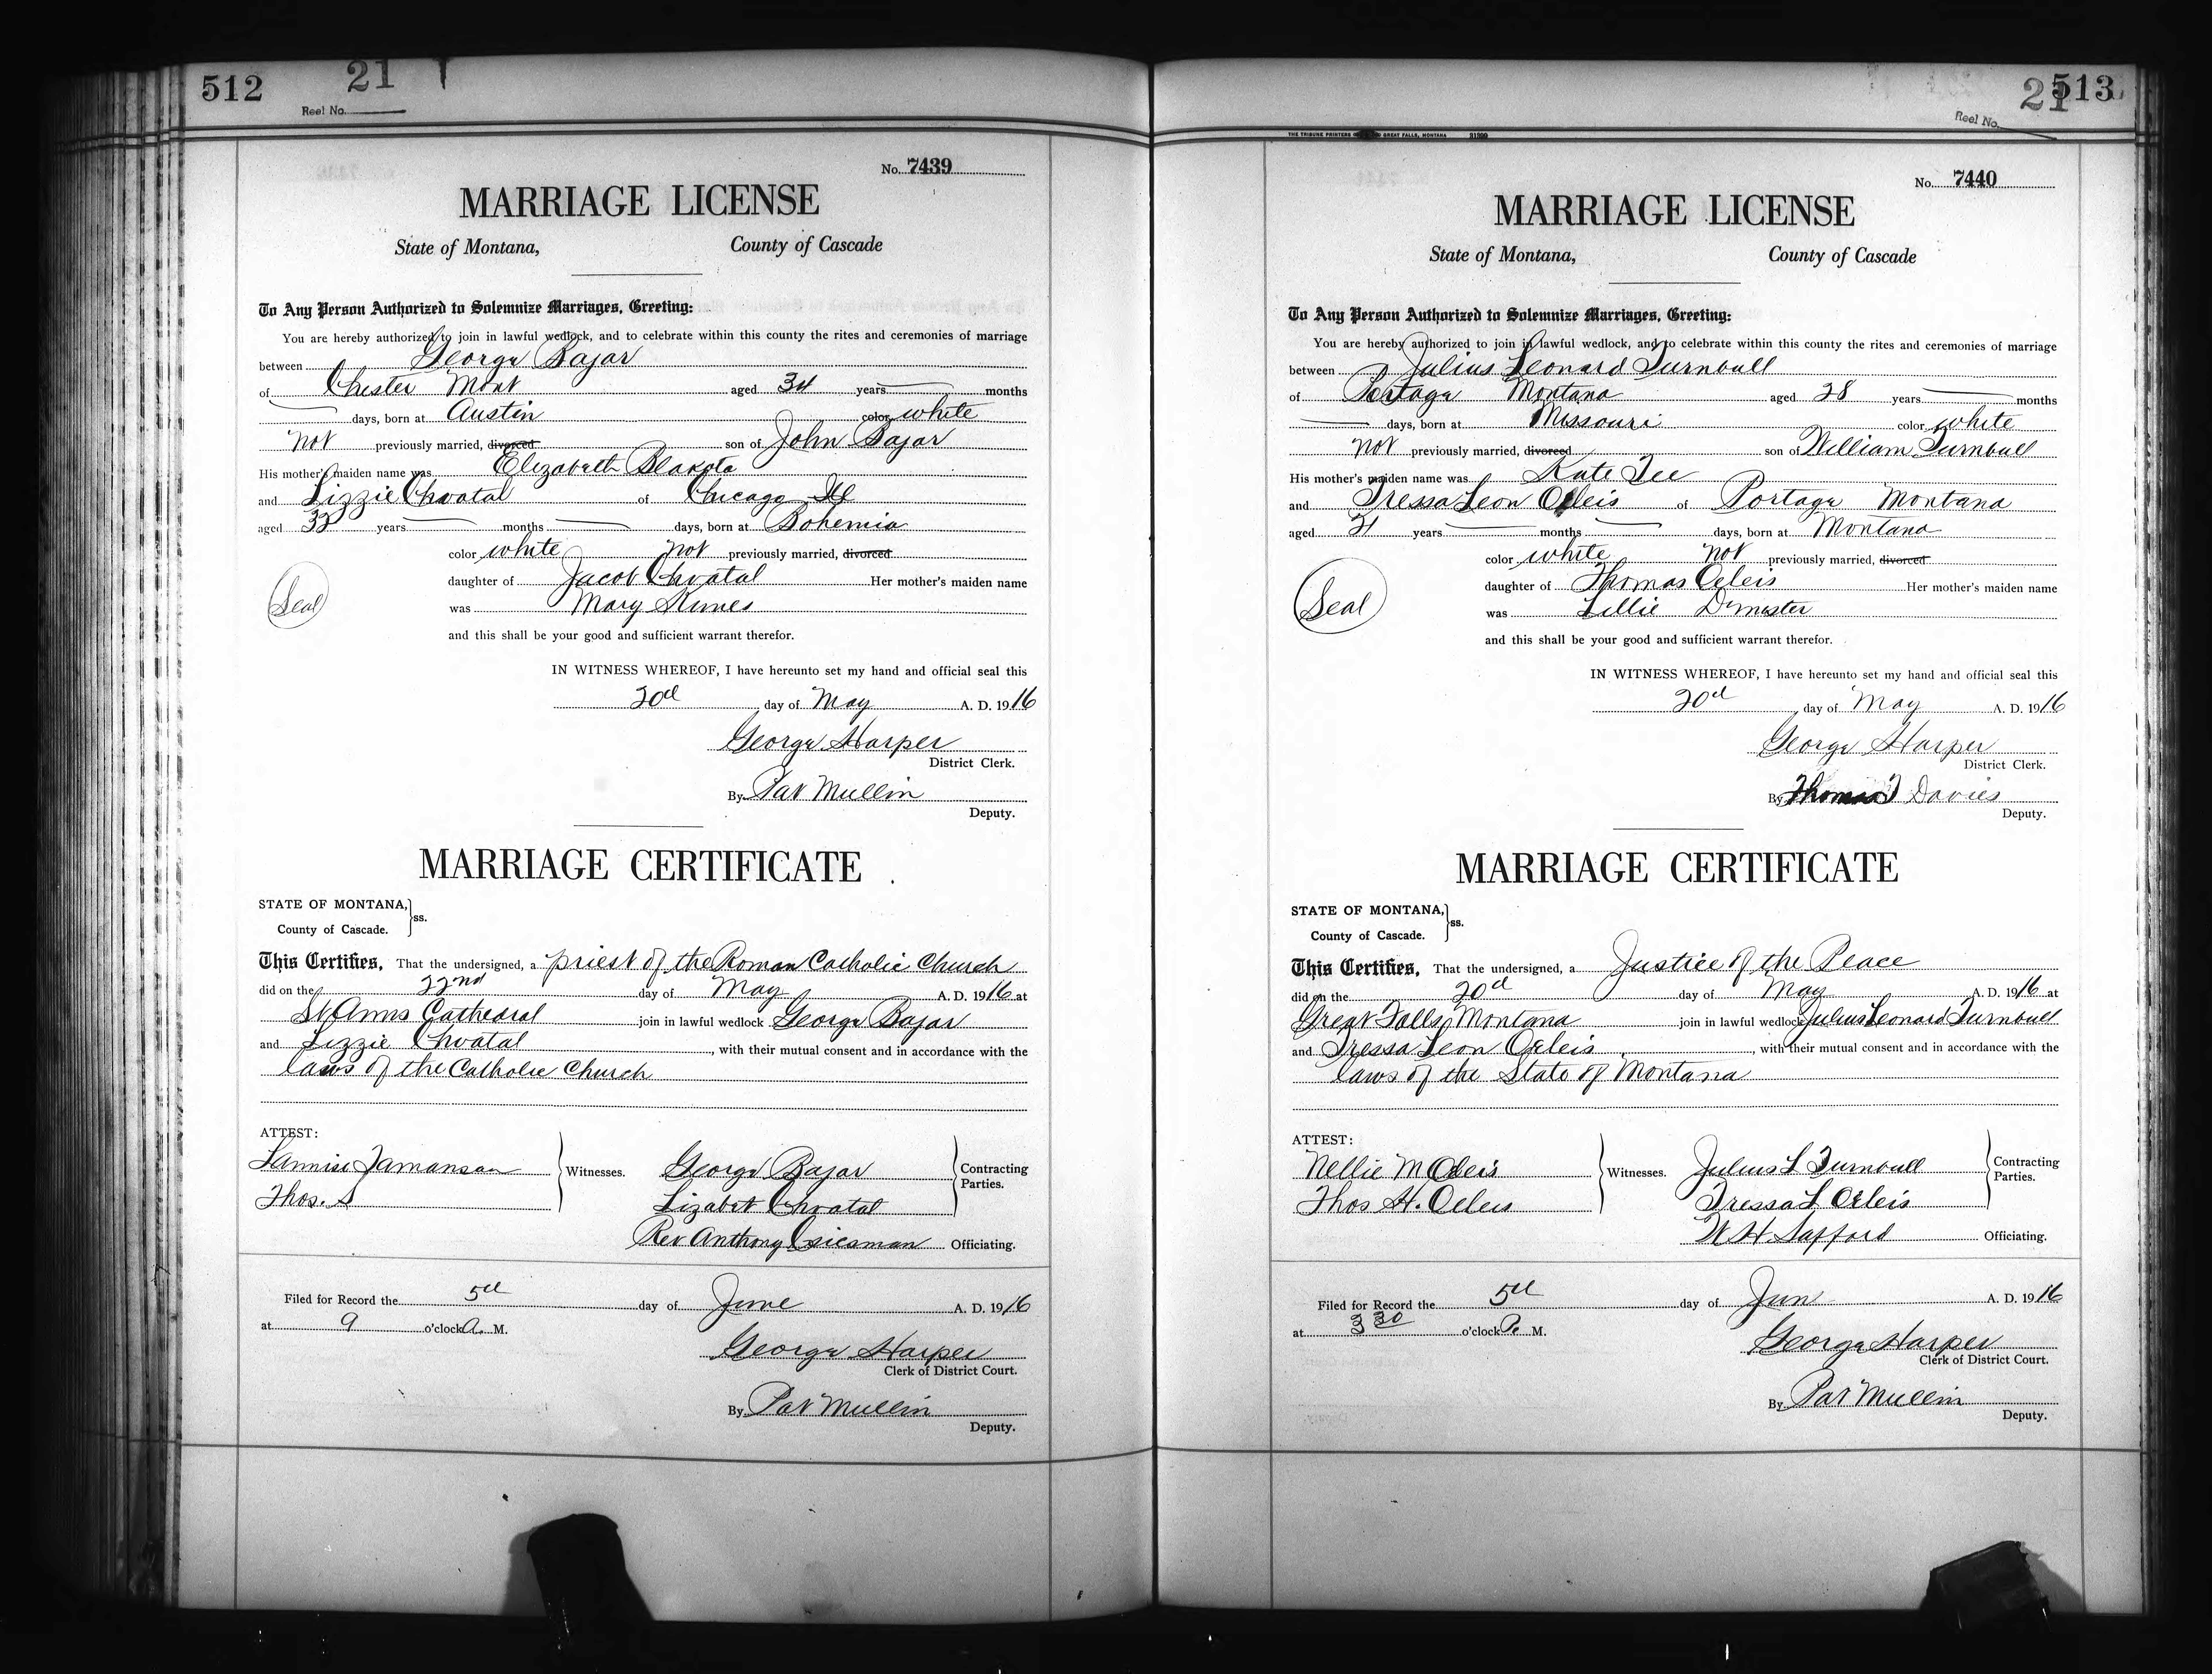 512
21
Reel No.
No. 7439
MARRIAGE LICENSE
State of Montana, County of Cascade
To Any Person Authorized to Solemnize Marriages, Greeting:
You are hereby authorized to join in lawful wedlock, and to celebrate within this county the rites and ceremonies of marriage
between George Bajar
of Chester Mont aged 34 years months
days, born at Austin color white
not previously married, divorced son of John Bajar
His mother's maiden name was Elizabeth
and Lizzie Chvatal of Chicago Ill
aged years months days, born at Bohemia
color white not previously married, divorced
daughter of Jacob Chvatal Her mother's maiden name
Seal
was Mary
and this shall be your good and sufficient warrant therefor.
IN WITNESS WHEREOF, I have hereunto set my hand and official seal this
20th day of May A. D. 1916
George Harper
District Clerk.
By Pat Mullin
Deputy.
MARRIAGE CERTIFICATE
STATE OF MONTANA,
ss.
County of Cascade.
This Certifies, That the undersigned, a priest of the Roman Catholic Church
did on the 22nd day of May A. D. 1916 at
St Anns Cathedral join in lawful wedlock George Bajar
and Lizzie Chvatal, with their mutual consent and in accordance with the
laws of the Catholic Church
ATTEST:
Witnesses. George Bajar Contracting Parties.
Thos. S
Lizabet Chvatal
Rev Anthony Officiating.
Filed for Record the 5th day of June A. D. 1916
at 9 o'clock A. M.
George Harper
Clerk of District Court.
By Pat Mullin
Deputy.
513
21
Reel No.
THE TRIBUNE PRINTERS GREAT FALLS, MONTANA
No. 7440
MARRIAGE LICENSE
State of Montana, County of Cascade
To Any Person Authorized to Solemnize Marriages, Greeting:
You are hereby authorized to join in lawful wedlock, and to celebrate within this county the rites and ceremonies of marriage
between Julius Leonard Turnbull
of Portage Montana aged 28 years months
days, born at Missouri color white
not previously married, divorced son of William Turnbull
His mother's maiden name was Kate Tee
and Tressa Leon Oeleis of Portage Montana
aged 21 years months days, born at Montana
color white not previously married, divorced
daughter of Thomas Oeleis Her mother's maiden name
Seal
was Lillie
and this shall be your good and sufficient warrant therefor.
IN WITNESS WHEREOF, I have hereunto set my hand and official seal this
20th day of May A. D. 1916
George Harper
District Clerk.
By Thomas J Davies
Deputy.
MARRIAGE CERTIFICATE
STATE OF MONTANA,
ss.
County of Cascade.
This Certifies, That the undersigned, a Justice of the Peace
did on the 20th day of May A. D. 1916 at
Great Falls Montana join in lawful wedlock Julius Leonard Turnbull
and Tressa Leon Oeleis, with their mutual consent and in accordance with the
laws of the State of Montana
ATTEST:
Nellie M Oeleis Witnesses. Julius L Turnbull Contracting Parties.
Thos H. Oeleis
Tressa L Oeleis
W H. Safford Officiating.
Filed for Record the 5th day of Jun A. D. 1916
at 3 30 o'clock P. M.
George Harper
Clerk of District Court.
By Pat Mullin
Deputy.